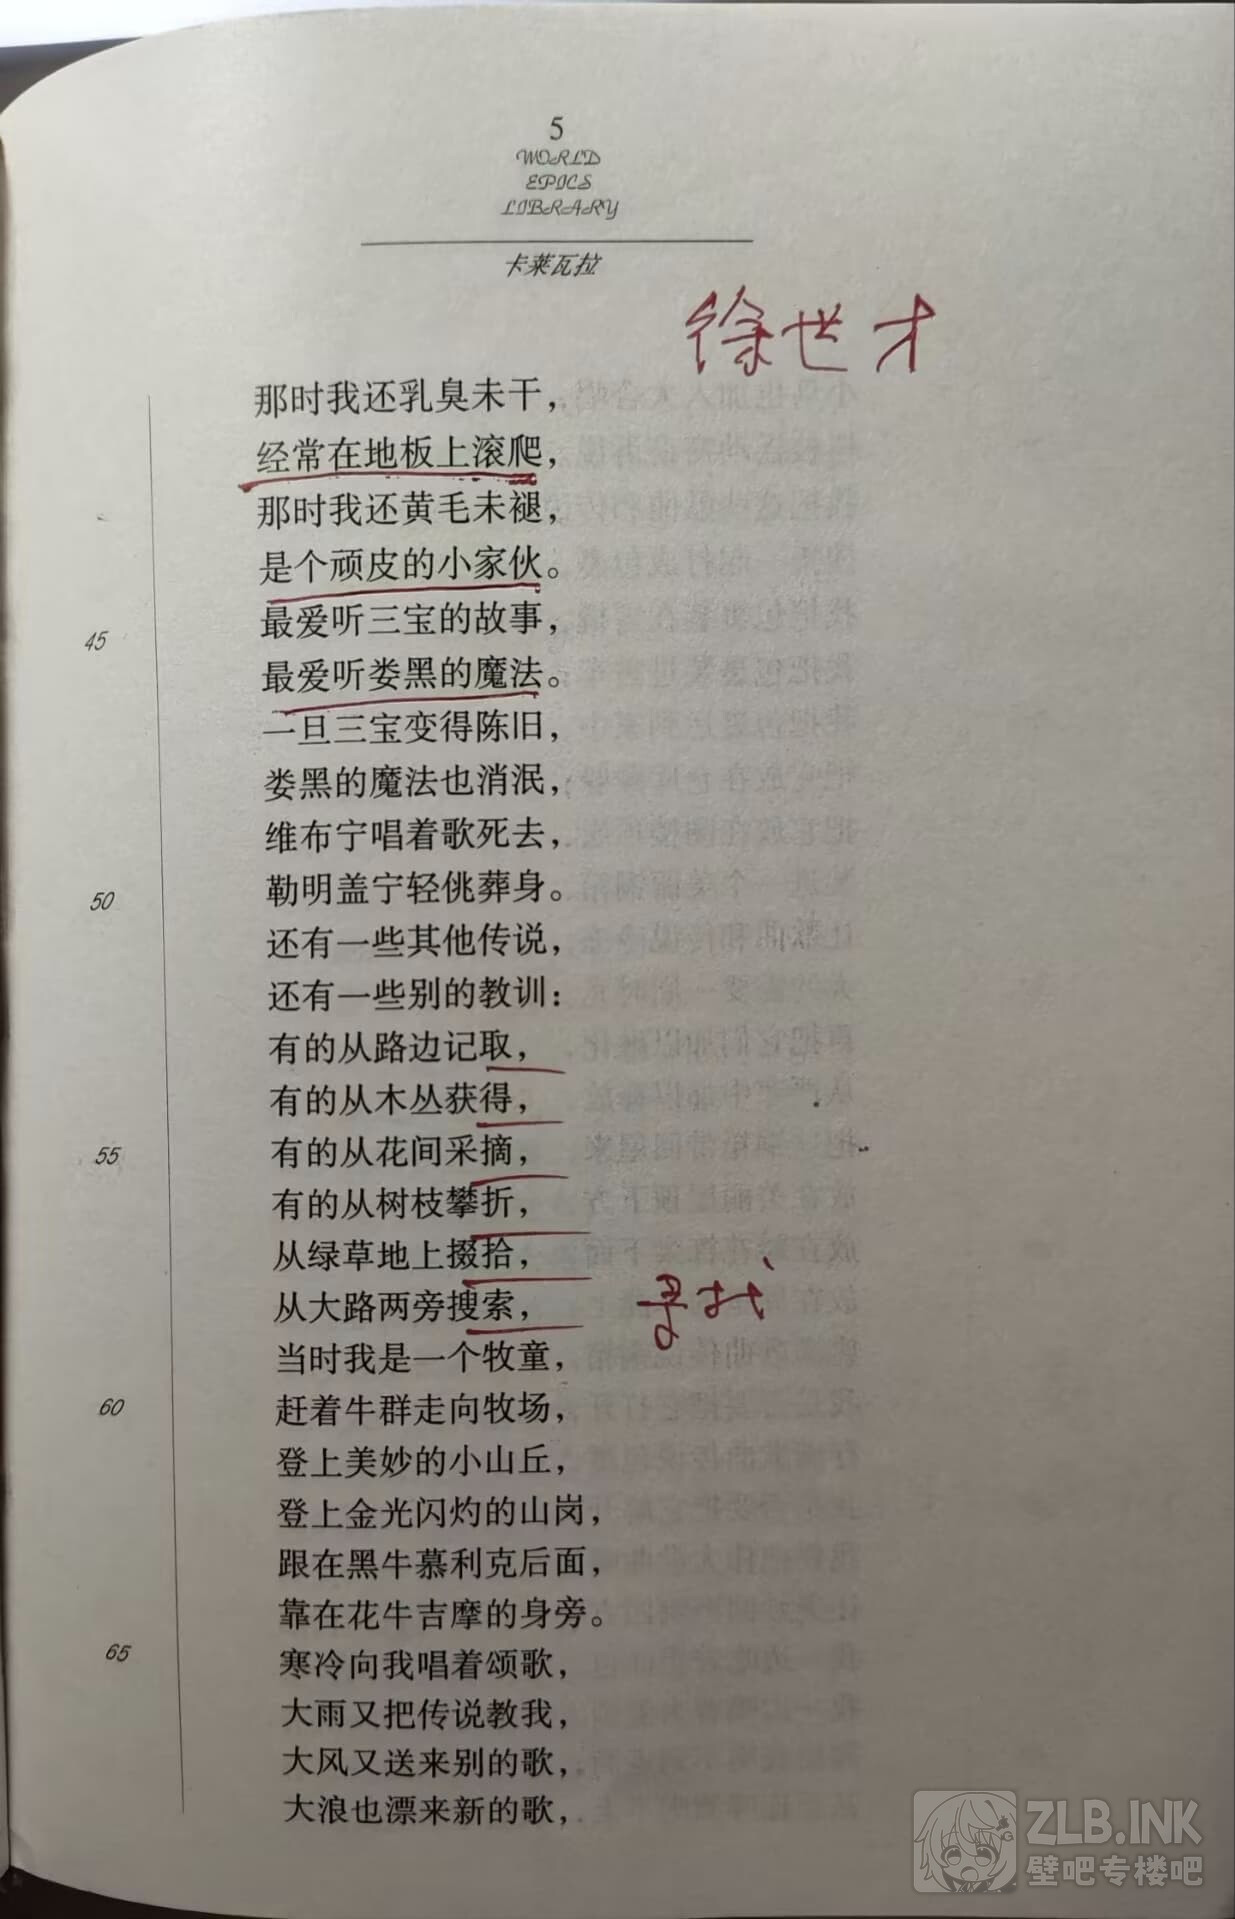 5
WORLD
EPICS
LIBRARY
卡莱瓦拉
徐世才
那时我还乳臭未干，
经常在地板上滚爬，
那时我还黄毛未褪，
是个顽皮的小家伙。
45 最爱听三宝的故事，
最爱听娄黑的魔法。
一旦三宝变得陈旧，
娄黑的魔法也消泯，
维布宁唱着歌死去，
50 勒明盖宁轻佻葬身。
还有一些其他传说，
还有一些别的教训：
有的从路边记取，
有的从木丛获得，
55 有的从花间采摘，
有的从树枝攀折，
从绿草地上掇拾，
从大路两旁搜索， 寻找
当时我是一个牧童，
60 赶着牛群走向牧场，
登上美妙的小山丘，
登上金光闪灼的山岗，
跟在黑牛慕利克后面，
靠在花牛吉摩的身旁。
65 寒冷向我唱着颂歌，
大雨又把传说教我，
大风又送来别的歌，
大浪也漂来新的歌，
ZLB.INK
壁吧专楼吧